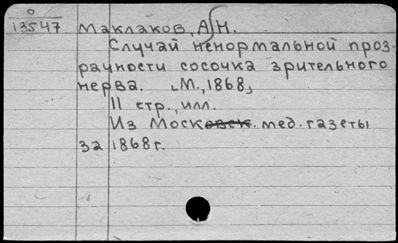 0
13547
Маклаков, А.Н.
Случай ненормальной проз-
рачности сосочка зрительного
нерва. [М., 1868]
11 стр., илл.
Из Моск. мед. газеты
за 1868 г.